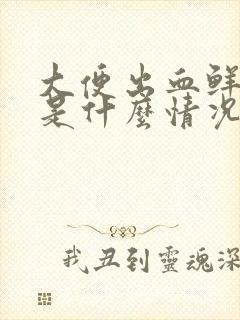 大便出血鲜
是什麼情况
我丑到靈魂深